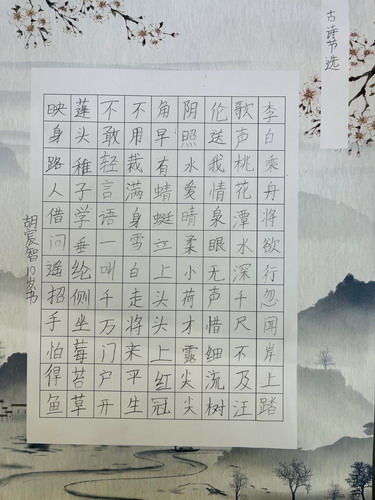 古诗节选
李白乘舟将欲行忽闻岸上踏
歌声桃花潭水深千尺不及汪
伦送我情泉眼无声惜细流树
阴照水爱晴柔小荷才露尖尖
角早有蜻蜓立上头头上红冠
不用栽满身雪白走将来平生
不敢轻言语一叫千万门户开
蓬头稚子学垂纶侧坐莓苔草
映身路人借问遥招手怕得鱼
胡宸智10岁书